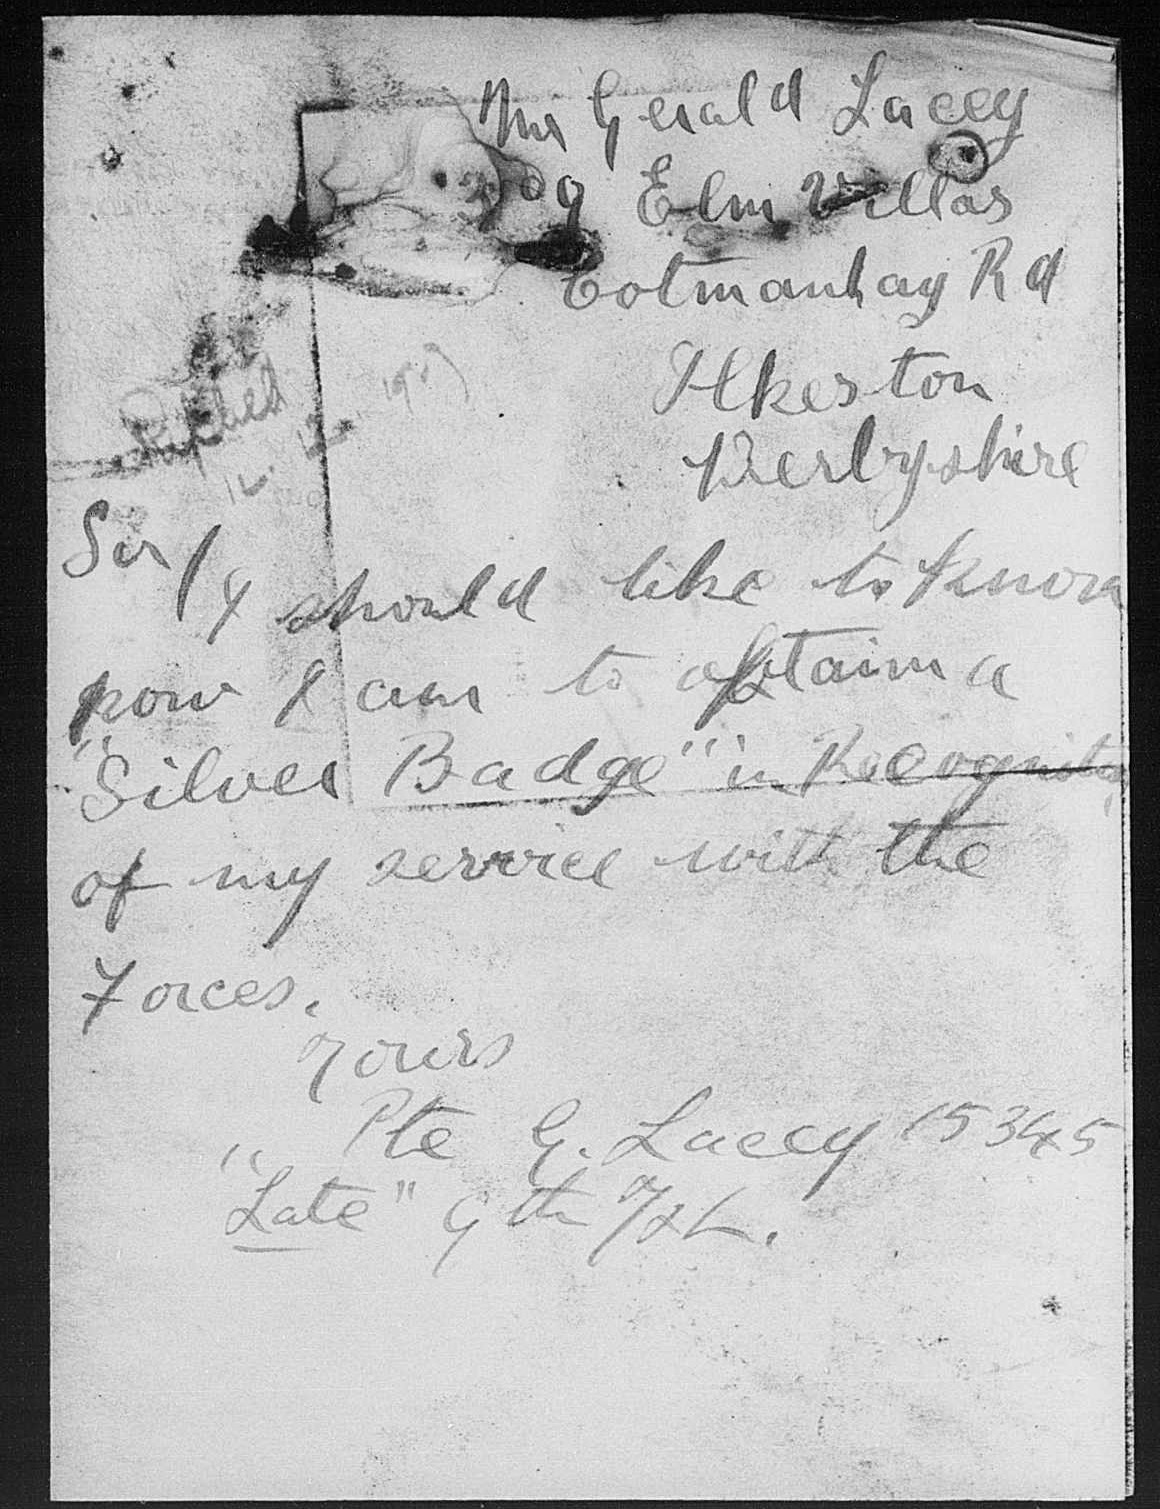 Mr Gerald Lacey
Elm Villas
Cotmanhay Rd
Ilkeston
Derbyshire
Replied
12
Sir/ I should like to know
how I am to obtain a
"Silver Badge" in Recognition
of my service with the
Forces.
Yours
Pte G. Lacey 15345
"Late" 9th